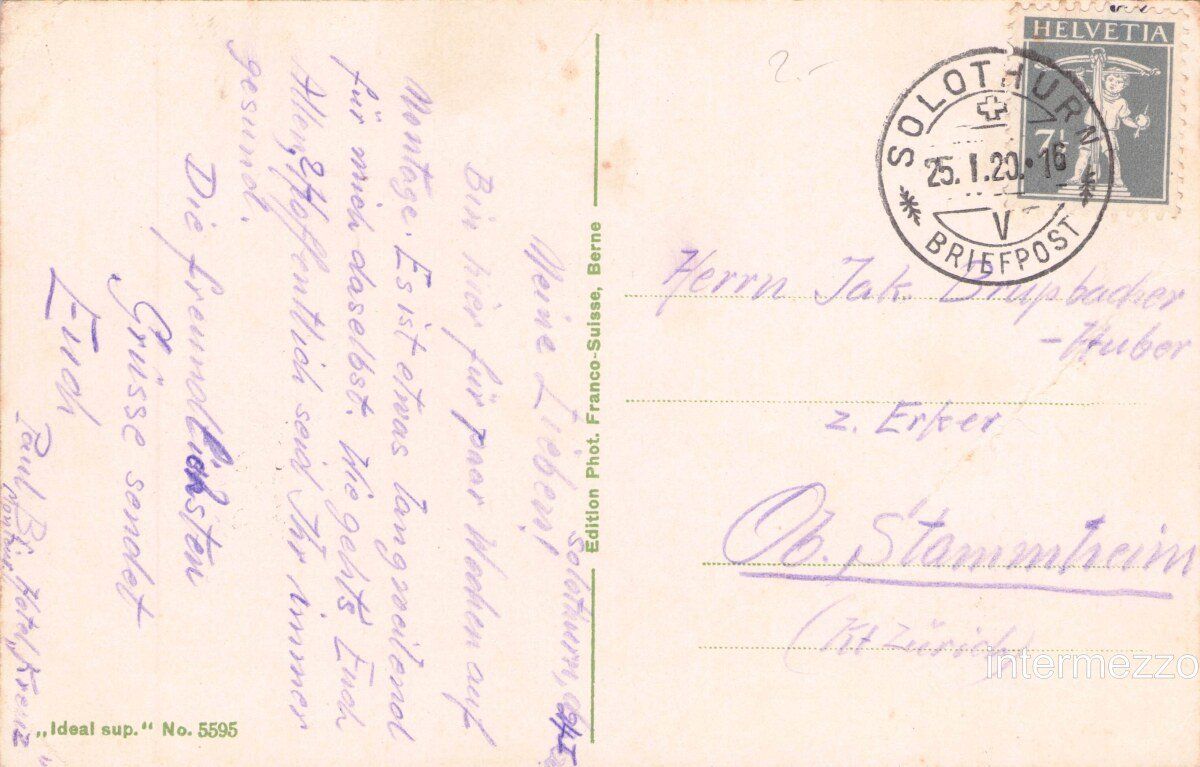 Solothurn,
Meine Lieben!
Bin hier für paar Wochen auf
Montage. Es ist etwas langweilend
für mich daselbst. Wie geht's Euch
Allen, Hoffentlich seid Ihr immer
gesund.
Die freundlichsten
Grüsse sendet
Euch
Paul
Hotel Kreuz
"Ideal sup." No. 5595
Edition Phot. Franco-Suisse, Berne
2.-
HELVETIA
7½
SOLOTHURN
25.I.20.-16
V
BRIEFPOST
Herrn Jak. Drupbacher
-Huber
z. Erker
Ob. Stammheim
(Kt Zürich)
intermezzo